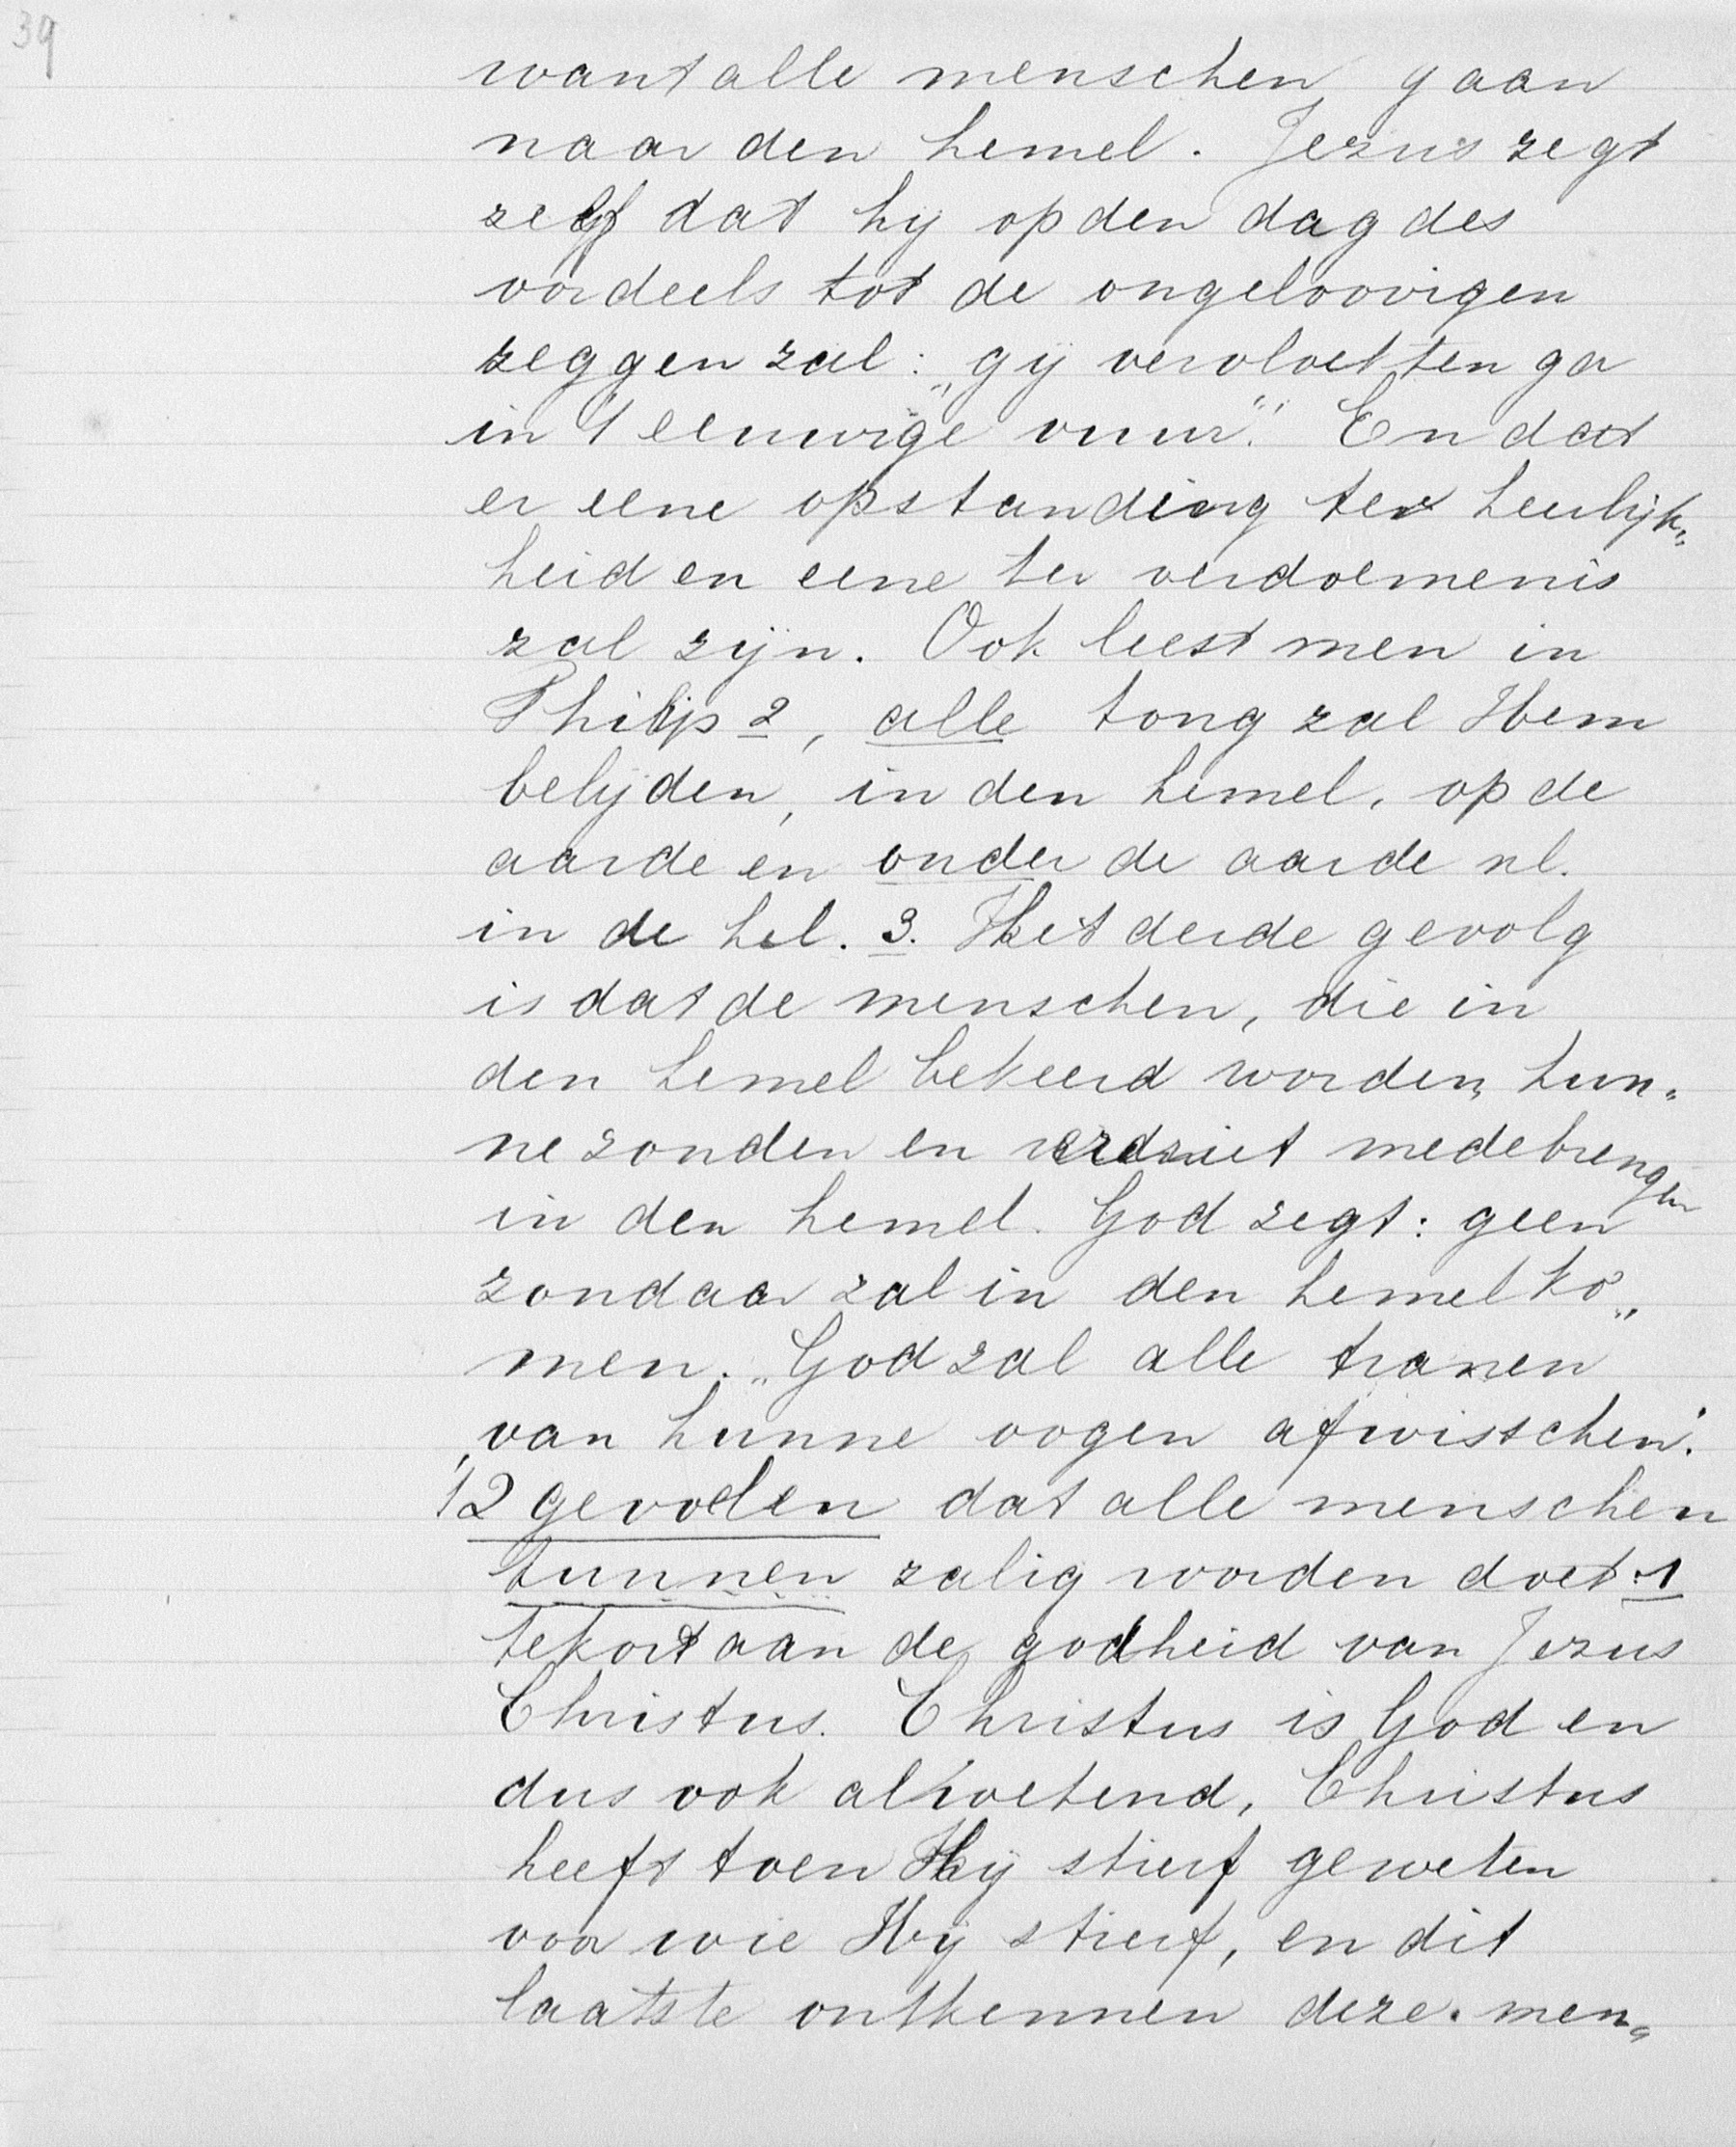 39
want alle menschen gaan
naar den hemel. Jezus zegt
zelf dat hij op den dag des
oordeels tot de ongeloovigen
zeggen zal: „gij vervloekten ga
in 't eeuwige vuur". En dat
er eene opstanding ter heerlijk„
heid en eene ter verdoemenis
zal zijn. Ook leest men in
Philip 2, alle tong zal Hem
belijden, in den hemel, op de
aarde en onder de aarde nl.
in de hel. 3. Het derde gevolg
is dat de menschen, die in
den hemel bekeerd worden, hun„
ne zonden en verdriet medebrengen
in den hemel. God zegt: geen
zondaar zal in den hemel ko„
men. „God zal alle tranen
van hunne oogen afwisschen".
't 2 gevoelen dat alle menschen
kunnen zalig worden doet 1
tekort aan de godheid van Jezus
Christus. Christus is God en
dus ook alwetend, Christus
heeft toen Hij stierf geweten
voor wie Hij stierf, en dit
laatste ontkennen deze men„